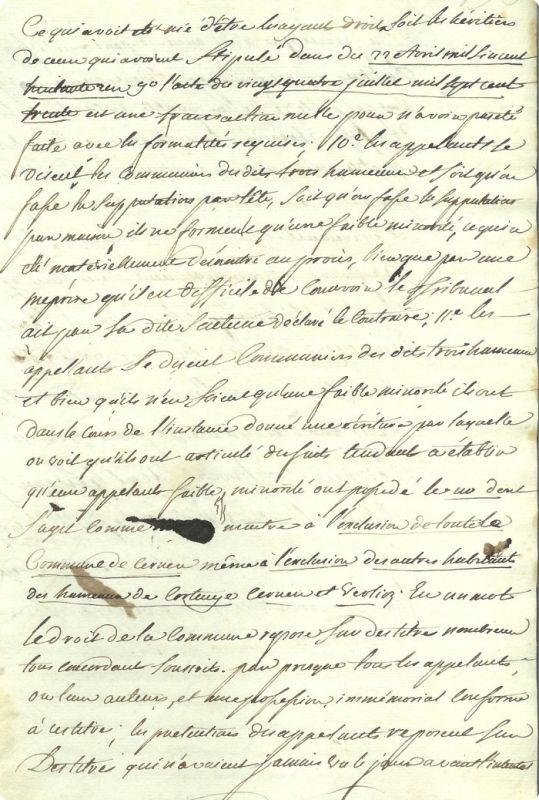 Ce qui avoit été nié d'être les ayant droit, soit les héritiers
de ceux qui avoient stipulé dans du 22 Avril mil six cent
go l'acte du vingt quatre juillet mil sept cent
trente est une transaction nulle pour n'avoir pas été
faite avec les formalités requises; 10.e les appelants se
disent les Communiers des dits trois hameaux et soit qu'on
fasse la supputation par tête, soit qu'on fasse la supputation
par maison ils ne forment qu'une faible minorité, ce qui a
été matériellement démontré au procès, bien que par une
méprise qu'il est difficile de concevoir le Tribunal
ait par sa dite Sentence déclaré le Contraire; 11.e les
appelants se disent Communiers des dits trois hameaux
et bien qu'ils n'en soient qu'une faible minorité ils ont
dans le cours de l'instance donné une écriture par laquelle
on voit qu'ils ont articulé des faits tendant à établir
qu'eux appelants faible minorité ont possédé le dont
s'agit comme maitre à l'exclusion de toute la
Commune de Cernex même à l'exclusion des autres habitants
des hameaux de Cortenge Cernex et Verlioz. En un mot
le droit de la Commune repose sur des titres nombreux
tous concordant souscrits par presque tous les appelants
ou leurs auteurs, et une possession immémorial conforme
à ces titres; les prétentions des appelants reposent sur
Des titres qui n'avaient jamais vu le jour avant l'instance